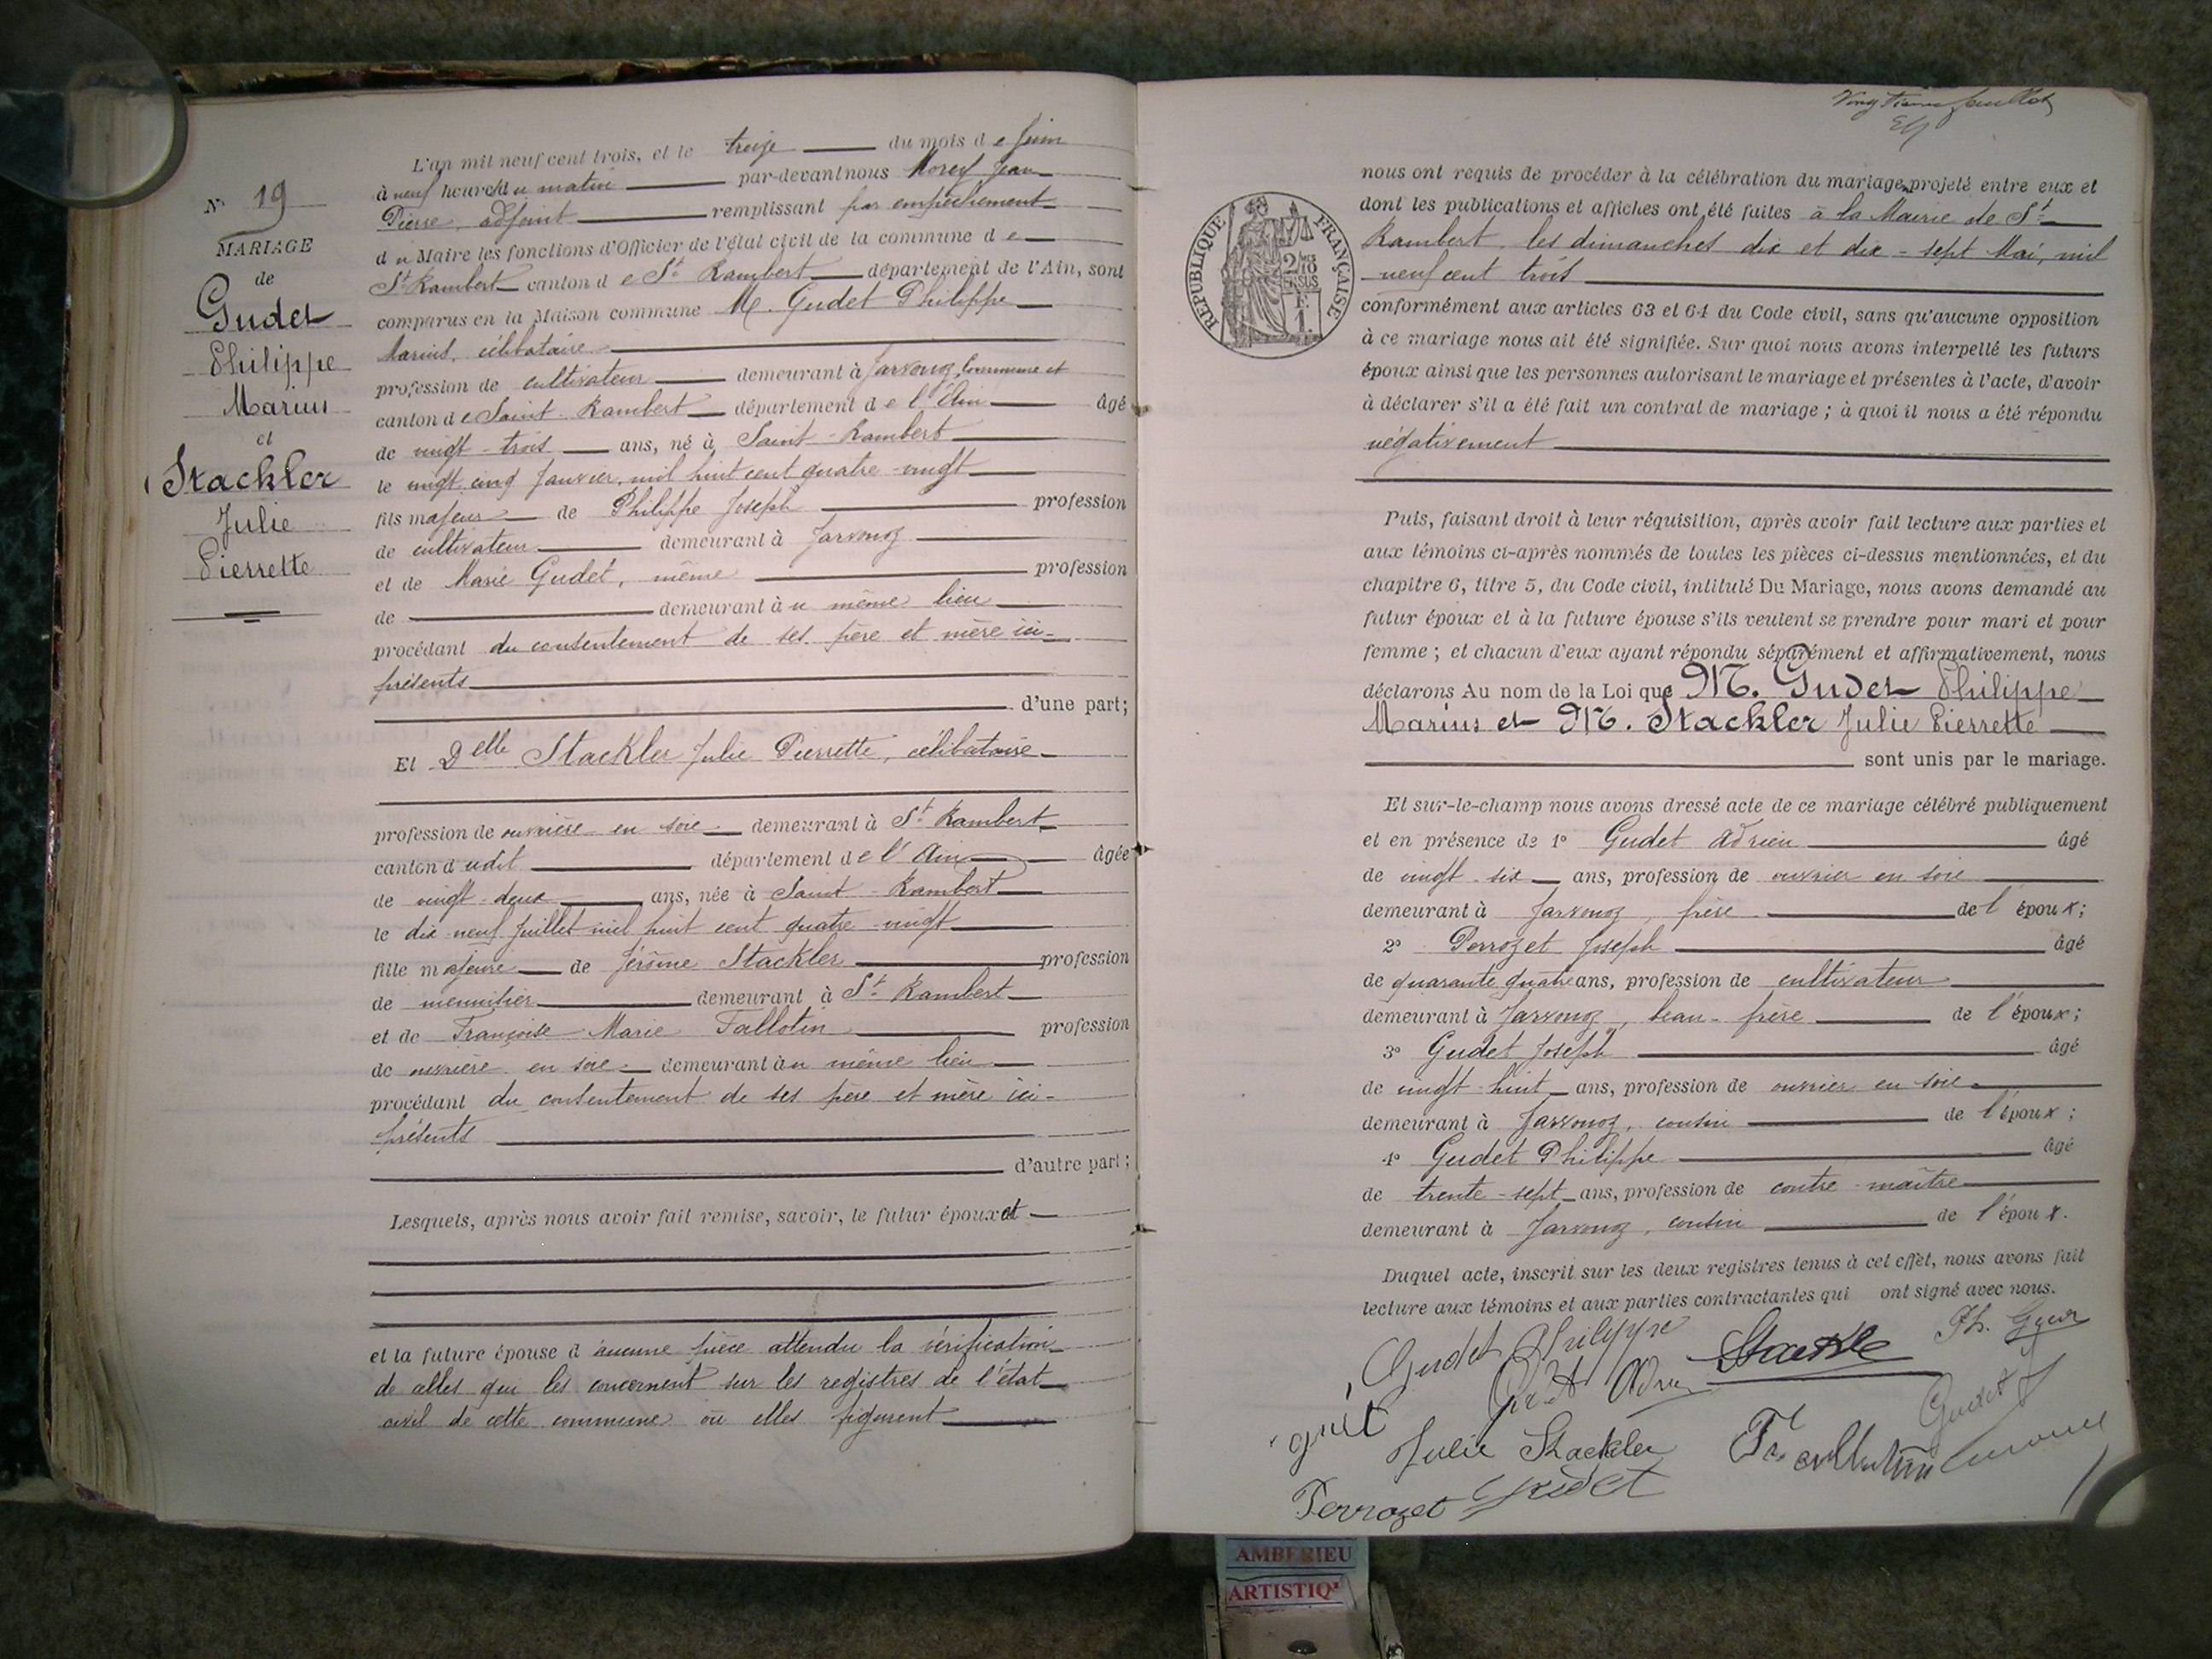 N° 19
MARIAGE
de
Gudet
Philippe
Marius
et
Stackler
Julie
Pierrette
L'an mil neuf cent trois, et le treize du mois de Juin
à neuf heures du matin par-devant nous Jean
Pierre, adjoint remplissant par empêchement
du Maire les fonctions d'Officier de l'état civil de la commune de
St Rambert canton de St Rambert département de l'Ain, sont
comparus en la Maison commune M. Gudet Philippe
Marius, célibataire
profession de cultivateur demeurant à Javronoz, Commune et
canton de Saint-Rambert département de l'Ain âgé
de vingt-trois ans, né à Saint-Rambert
le vingt cinq Janvier, mil huit cent quatre-vingt
fils majeur de Philippe Joseph profession
de cultivateur demeurant à Javronoz
et de Marie Gudet, même profession
de demeurant au même lieu
procédant du consentement de ses père et mère ici-
présents
d'une part;
Et Delle Stackler Julie Pierrette, célibataire
profession de ouvrière en soie demeurant à St Rambert
canton dudit département de l'Ain âgée
de vingt-deux ans, née à Saint-Rambert
le dix-neuf Juillet mil huit cent quatre-vingt
fille majeure de Jérôme Stackler profession
de menuisier demeurant à St Rambert
et de Françoise Marie Tallotin profession
de ouvrière en soie demeurant au même lieu
procédant du consentement de ses père et mère ici-
présents
d'autre part;
Lesquels, après nous avoir fait remise, savoir, le futur époux et
et la future épouse d'aucune pièce attendu la vérification
de celles qui les concernent sur les registres de l'état
civil de cette commune où elles figurent
feuillet
RÉPUBLIQUE FRANÇAISE
nous ont requis de procéder à la célébration du mariage projeté entre eux et
dont les publications et affiches ont été faites à la Mairie de St
Rambert les dimanches dix et dix-sept Mai, mil
neuf cent trois
conformément aux articles 63 et 64 du Code civil, sans qu'aucune opposition
à ce mariage nous ait été signifiée. Sur quoi nous avons interpellé les futurs
époux ainsi que les personnes autorisant le mariage et présentes à l'acte, d'avoir
à déclarer s'il a été fait un contrat de mariage; à quoi il nous a été répondu
négativement
Puis, faisant droit à leur réquisition, après avoir fait lecture aux parties et
aux témoins ci-après nommés de toutes les pièces ci-dessus mentionnées, et du
chapitre 6, titre 5, du Code civil, intitulé Du Mariage, nous avons demandé au
futur époux et à la future épouse s'ils veulent se prendre pour mari et pour
femme; et chacun d'eux ayant répondu séparément et affirmativement, nous
déclarons Au nom de la Loi que M. Gudet Philippe
Marius et M. Stackler Julie Pierrette
sont unis par le mariage.
Et sur-le-champ nous avons dressé acte de ce mariage célébré publiquement
et en présence de 1° Gudet Adrien âgé
de vingt-six ans, profession de ouvrier en soie
demeurant à Javronoz, frère de l'époux;
2° Perrozet Joseph âgé
de quarante quatre ans, profession de cultivateur
demeurant à Javronoz, beau-frère de l'époux;
3° Gudet Joseph âgé
de vingt-huit ans, profession de ouvrier en soie
demeurant à Javronoz, cousin de l'époux;
4° Gudet Philippe âgé
de trente-sept ans, profession de contre-maître
demeurant à Javronoz, cousin de l'époux.
Duquel acte, inscrit sur les deux registres tenus à cet effet, nous avons fait
lecture aux témoins et aux parties contractantes qui ont signé avec nous.
Gudet Philippe
Stackle
Julie Stackler
Gudet
Perrozet Gudet
AMBERIEU
ARTISTIQ